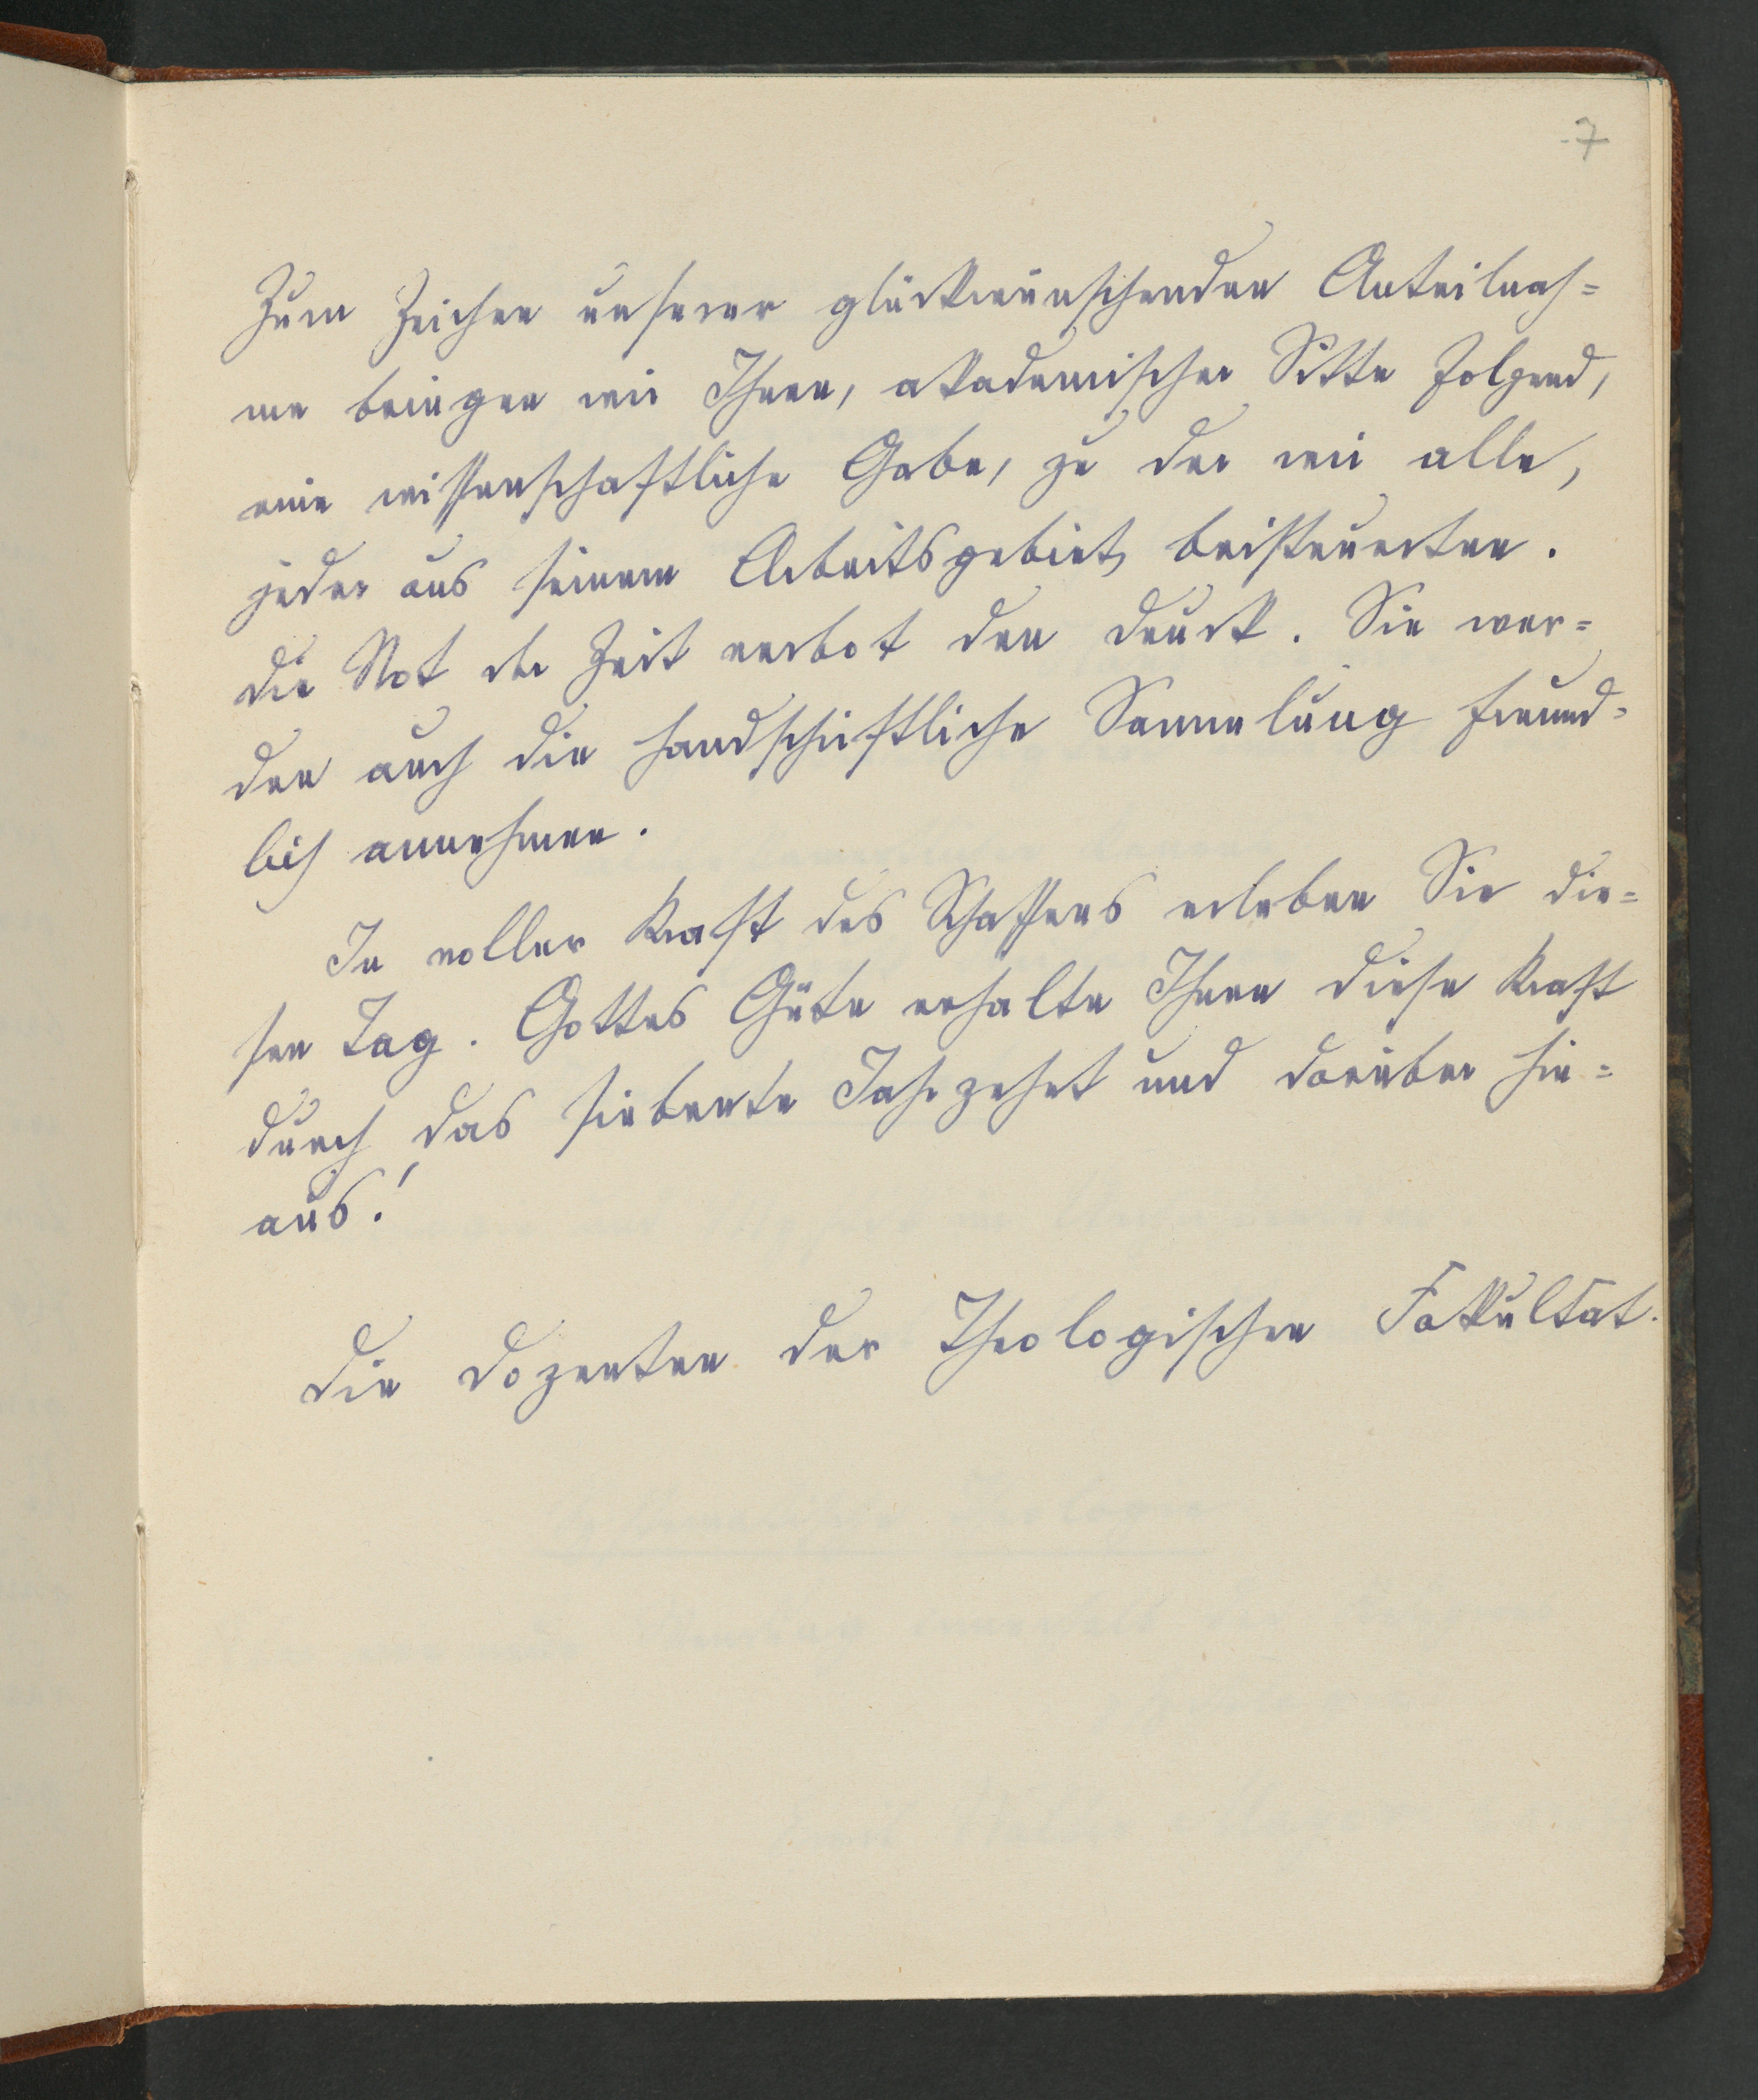 7
Zum Zeichen unserer glückwünschenden Anteilnah=
me bringen wir Ihnen, akademischer Sitte folgend,
eine wissenschaftliche Gabe, zu der wir alle,
jeder aus seinem Arbeitsgebiet, beisteuerten.
Die Not der Zeit verbot den Druck. Sie wer=
den auch die handschriftliche Sammlung freund=
lich annehmen.
In voller Kraft des Schaffens erleben Sie die=
sen Tag. Gottes Güte erhalte Ihnen diese Kraft
durch das siebente Jahrzehnt und darüber hin=
aus!
Die Dozenten der Theologischen Fakultät.